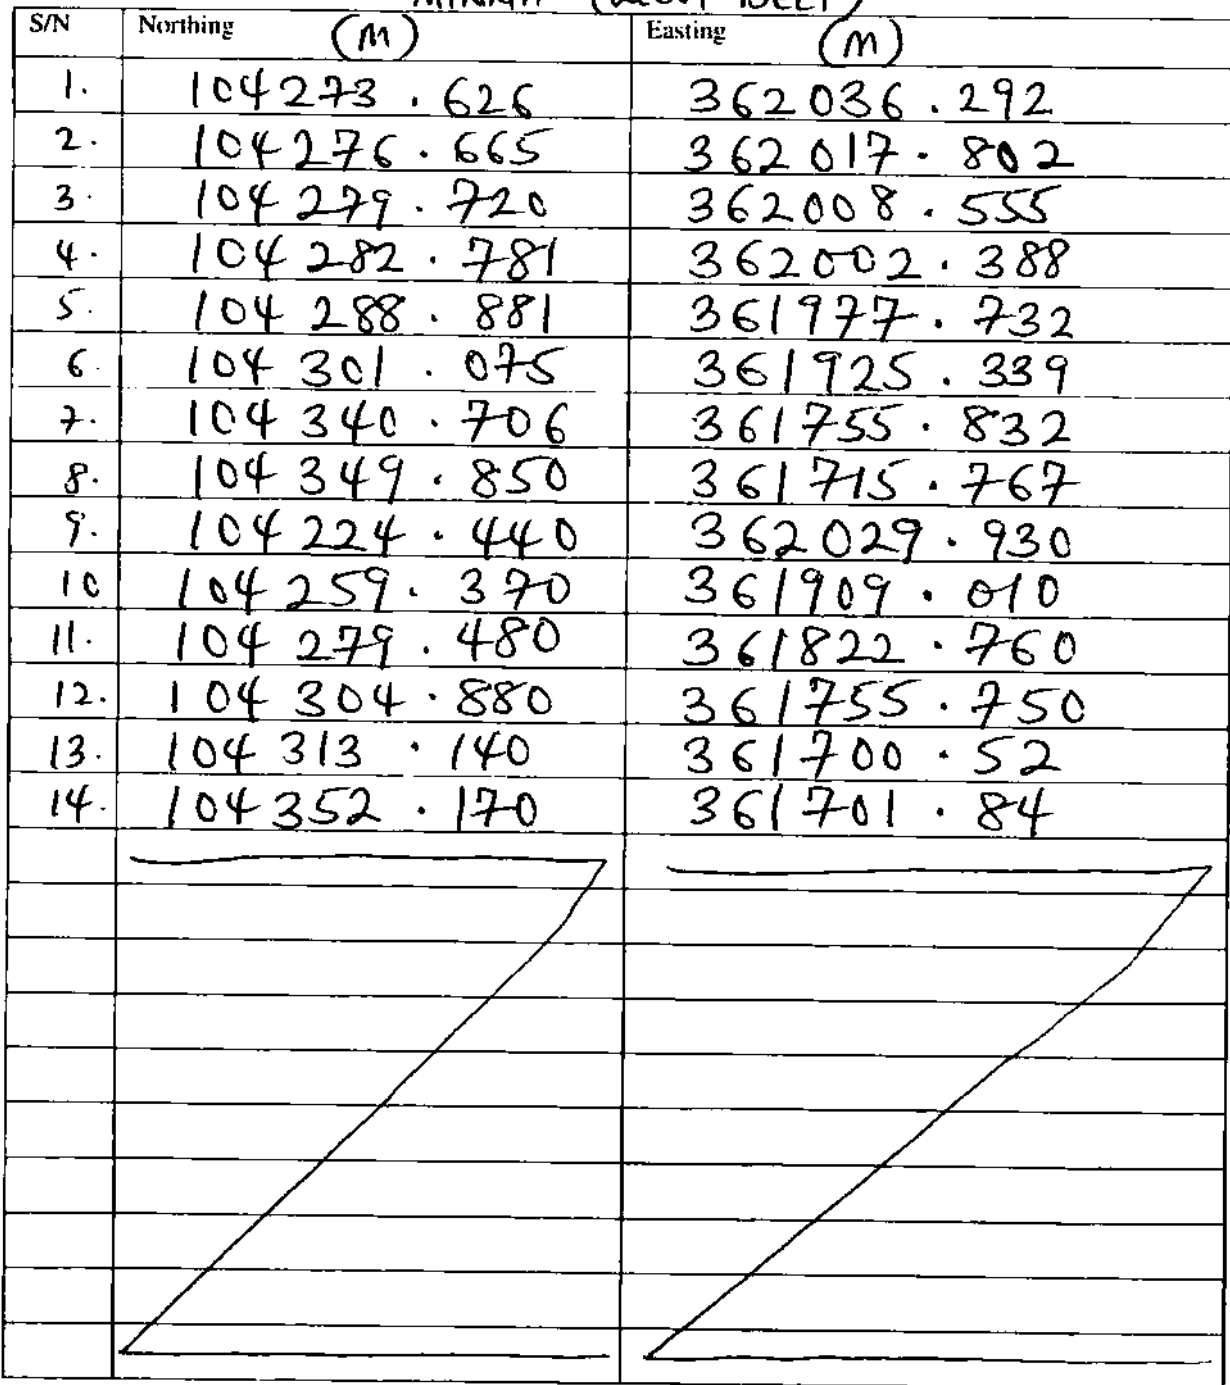 S/N Northing (M) Easting (M)
1. 104273.626 362036.292
2. 104276.665 362017.802
3. 104279.720 362008.555
4. 104282.781 362002.388
5. 104288.881 361977.732
6. 104301.075 361925.339
7. 104340.706 361755.832
8. 104349.850 361715.767
9. 104224.440 362029.930
10 104259.370 361909.010
11. 104279.480 361822.760
12. 104304.880 361755.750
13. 104313.140 361700.52
14. 104352.170 361701.84